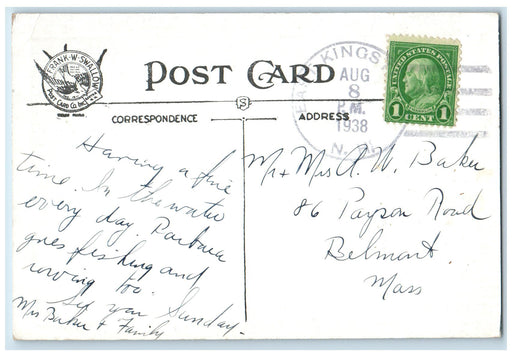 FRANK·W·SWALLOW
POST CARD CO. INC.
POST CARD
CORRESPONDENCE
ADDRESS
EAST KINGSTON
AUG
8
P.M.
1938
N.H.
UNITED STATES POSTAGE
1 1
CENT
Having a fine
time. In the water
every day. Barbara
goes fishing and
rowing too.
See you Sunday-
Mrs Baker & Family
Mr + Mrs A. W. Baker
86 Payson Road
Belmont.
Mass